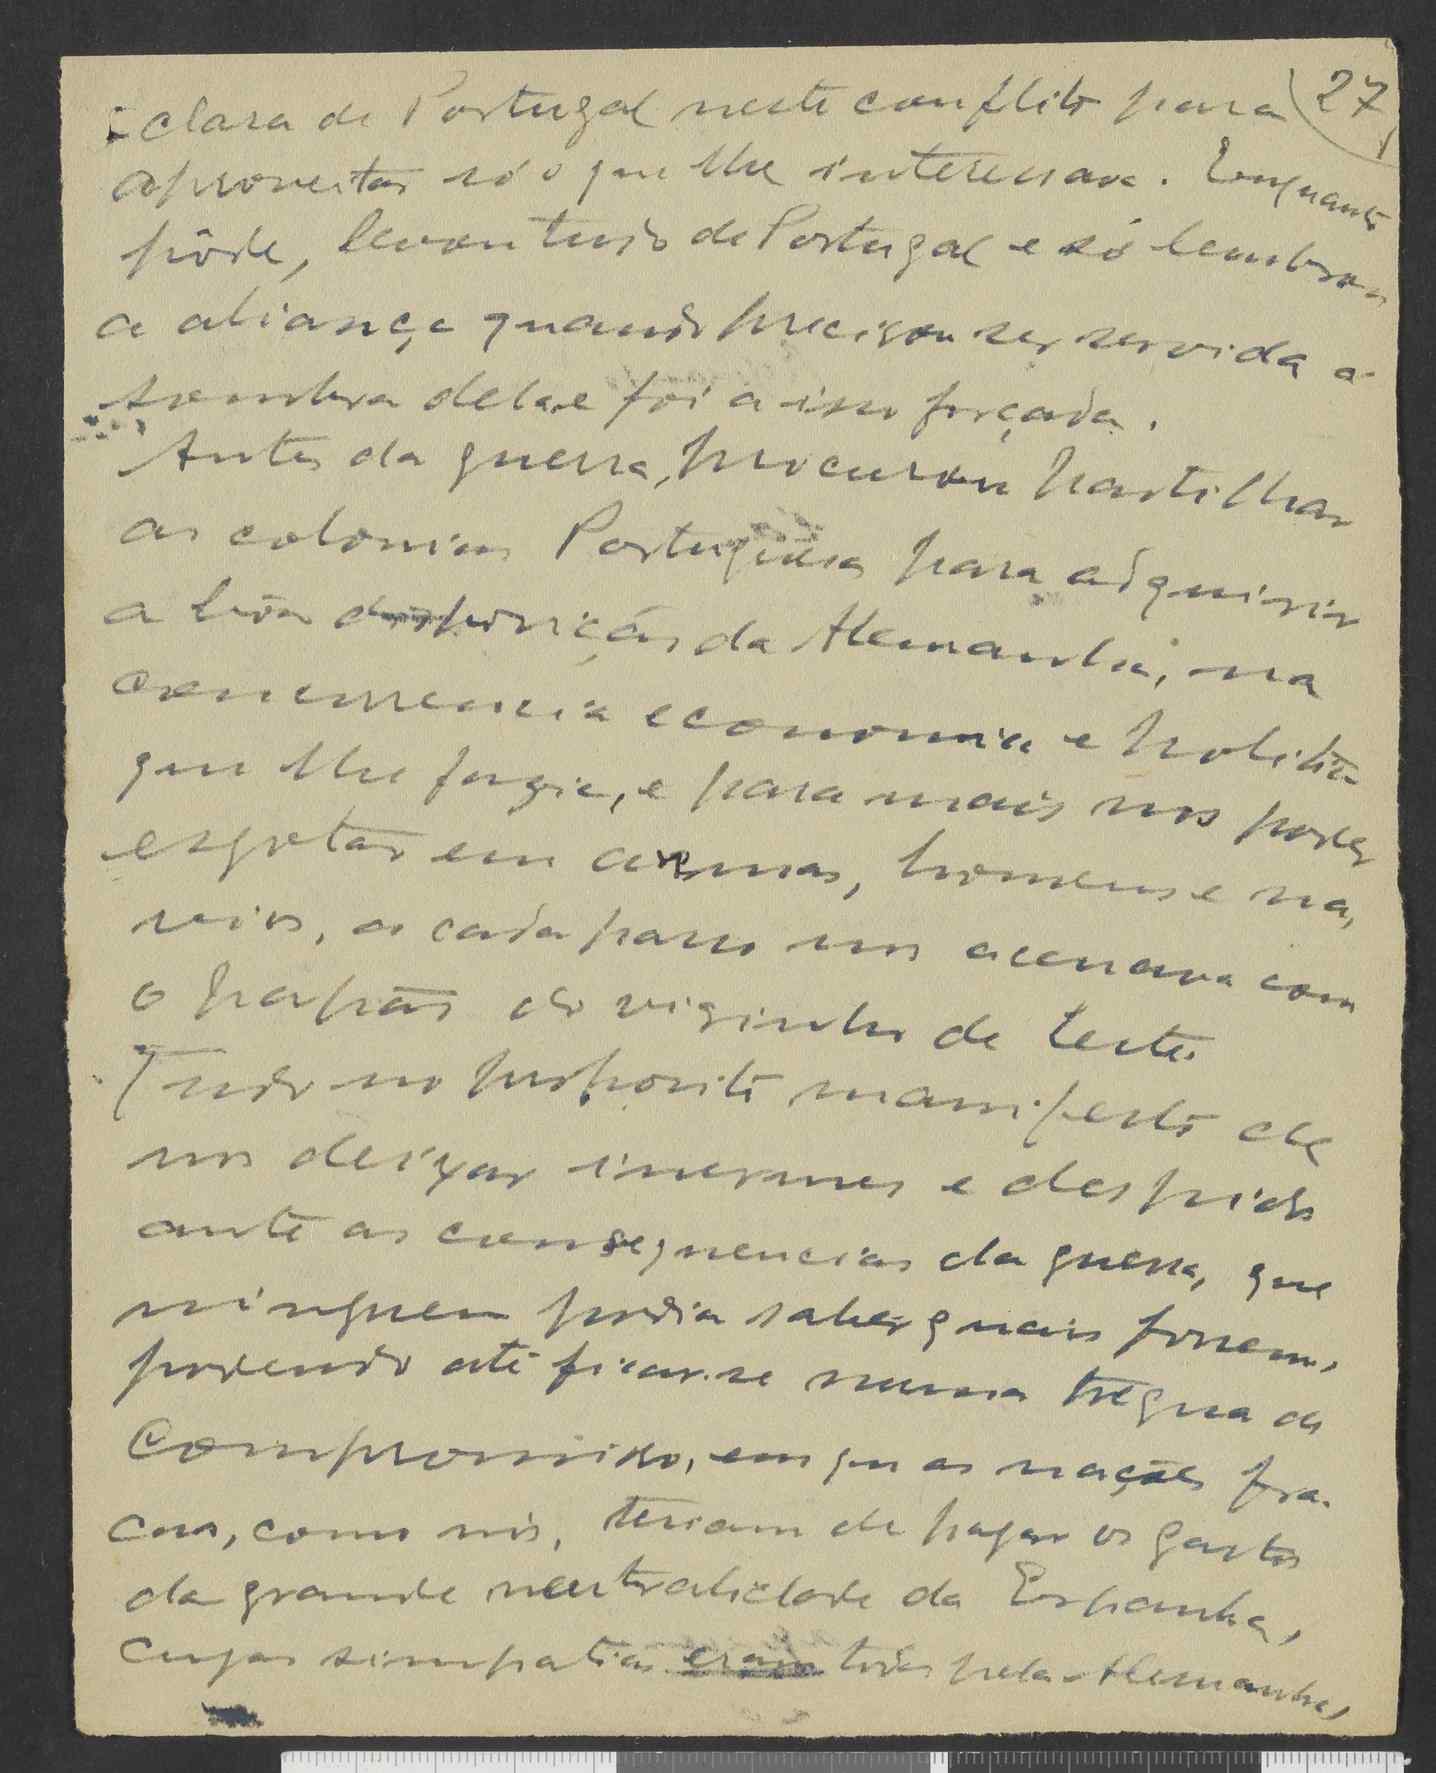 clara de Portugal neste conflito para 27
aproveitar só o que lhe interessava. Enquanto
pôde, levou tudo de Portugal e só lembrou
a aliança quando precisou ser servida á
sombra dela e foi a isso forçada.
Antes da guerra, procurou partilhar
as colonias Portuguesas para adquirir
a bôa disposição da Alemanha, na
concurrencia economica e politica
que lhe fugia, e para mais nos poder
esgotar em armas, homens e na,
vios, a cada passo nos acenava com
o papão do visinho de Leste.
Tudo no proposito manifesto de
nos deixar inermes e despidos
ante as consequencias da guerra, que
ninguem podia saber quais fossem,
podendo até ficar-se numa tregua de
Compromisso, em que as nações fra-
cas, como nós, teriam de pagar os gastos
da grande neutralidade da Espanha,
cujas simpatias eram todas pela Alemanha,